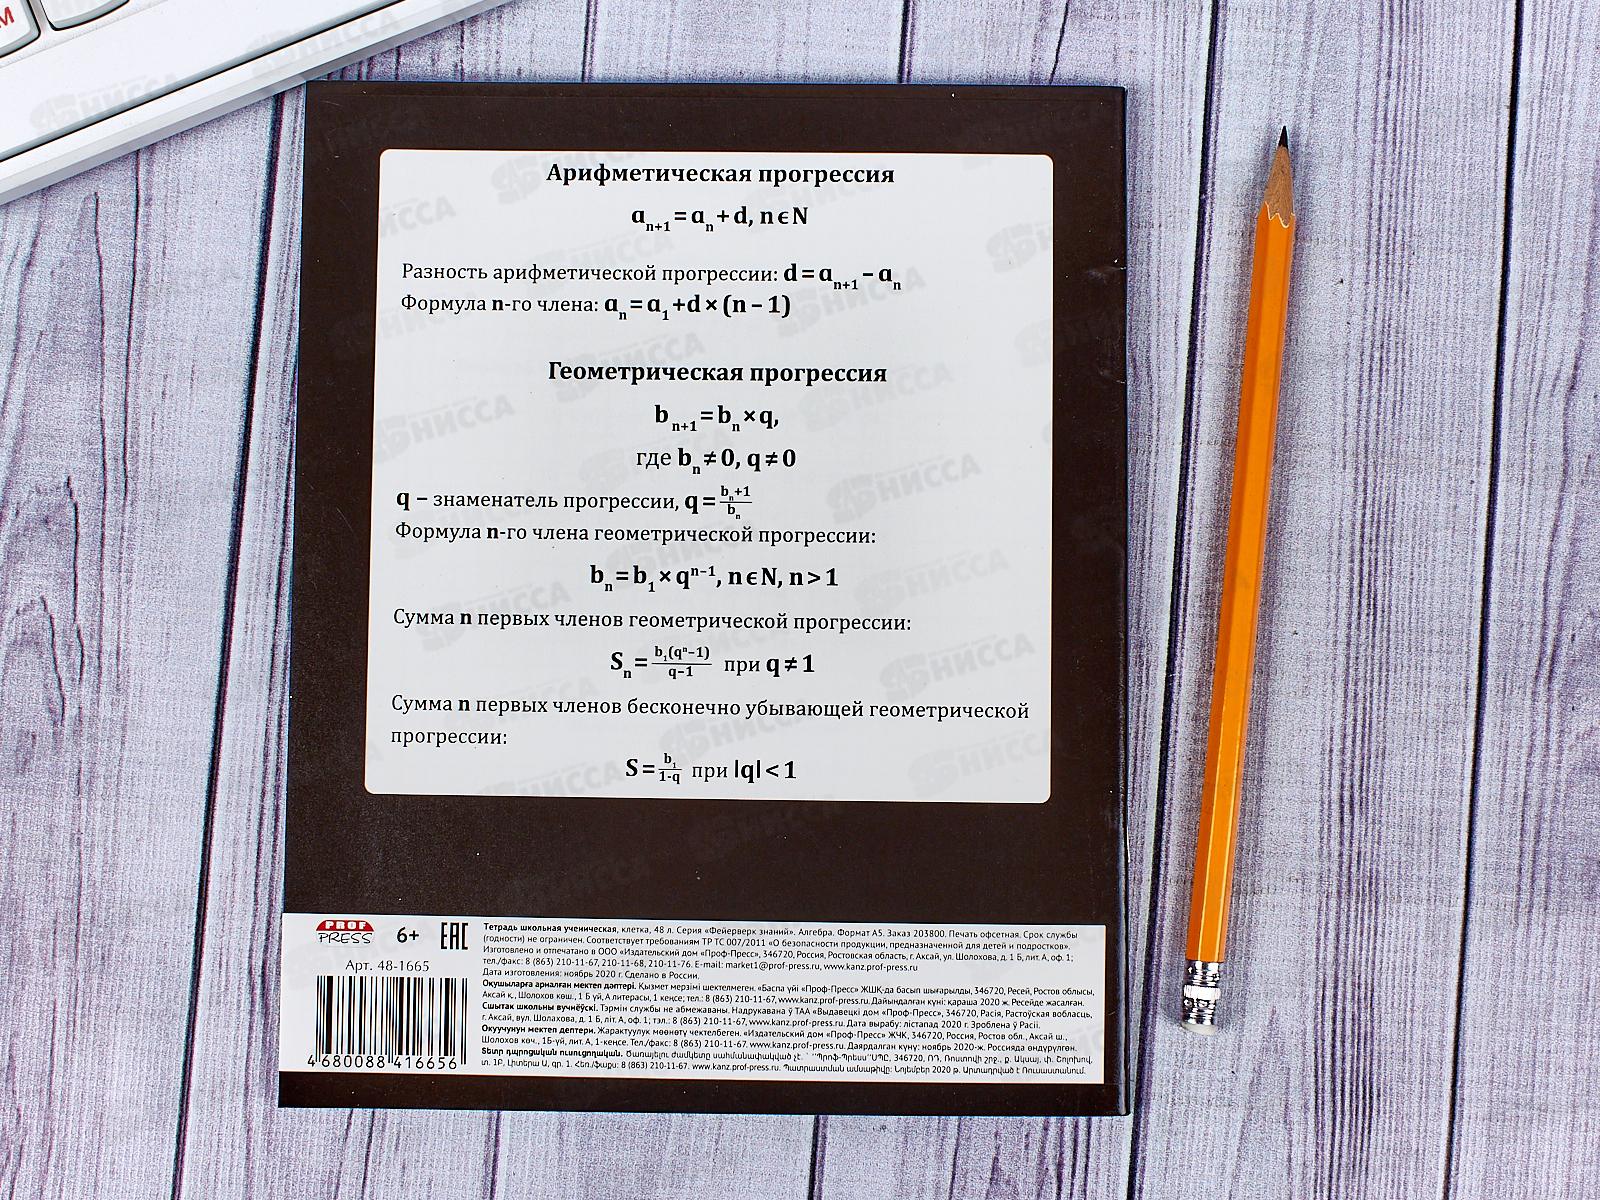 Арифметическая прогрессия
aₙ₊₁ = aₙ + d, n ϵ N
Разность арифметической прогрессии: d = aₙ₊₁ – aₙ
Формула n-го члена: aₙ = a₁ + d × (n – 1)
Геометрическая прогрессия
bₙ₊₁ = bₙ × q,
где bₙ ≠ 0, q ≠ 0
q – знаменатель прогрессии, q = bₙ+1 / bₙ
Формула n-го члена геометрической прогрессии:
bₙ = b₁ × qⁿ⁻¹, n ϵ N, n > 1
Сумма n первых членов геометрической прогрессии:
Sₙ = b₁(qⁿ–1) / q–1 при q ≠ 1
Сумма n первых членов бесконечно убывающей геометрической
прогрессии:
S = b₁ / 1-q при |q| < 1
PROF
PRESS
6+
EAC
Арт. 48-1665
4 680088 416656
Тетрадь школьная ученическая, клетка, 48 л. Серия «Фейерверк знаний». Алгебра. Формат А5. Заказ 203800. Печать офсетная. Срок службы
(годности) не ограничен. Соответствует требованиям ТР ТС 007/2011 «О безопасности продукции, предназначенной для детей и подростков».
Изготовлено и отпечатано в ООО «Издательский дом «Проф-Пресс», 346720, Россия, Ростовская область, г. Аксай, ул. Шолохова, д. 1 Б, лит. А, оф. 1;
тел./факс: 8 (863) 210-11-67, 210-11-68, 210-11-76. E-mail: market1@prof-press.ru, www.kanz.prof-press.ru
Дата изготовления: ноябрь 2020 г. Сделано в России.
Оқушыларға арналған мектеп дәптері. Қызмет мерзімі шектелмеген. «Баспа үйі «Проф-Пресс» ЖШҚ-да басып шығарылды, 346720, Ресей, Ростов облысы,
Аксай қ., Шолохов көш., 1 Б үй, А литерасы, 1 кеңсе; тел.: 8 (863) 210-11-67, www.kanz.prof-press.ru. Дайындалған күні: қараша 2020 ж. Ресейде жасалған.
Сшытак школьны вучнёўскі. Тэрмін службы не абмежаваны. Надрукавана ў ТАА «Выдавецкі дом «Проф-Пресс», 346720, Расія, Растоўская вобласць,
г. Аксай, вул. Шолахова, д. 1 Б, літ. А, оф. 1; тэл.: 8 (863) 210-11-67, www.kanz.prof-press.ru. Дата вырабу: лістапад 2020 г. Зроблена ў Расіі.
Окуучунун мектеп дептери. Жарактуулук мөөнөтү чектелбеген. «Издательский дом «Проф-Пресс» ЖЧК, 346720, Россия, Ростов обл., Аксай ш.,
Шолохов көч., 1Б-үй, лит. А, 1-кеңсе. Тел./факс: 8 (863) 210-11-67. www.kanz.prof-press.ru. Даярдалган күнү: ноябрь 2020-ж. Россияда өндүрүлгөн.
Տետր դպրոցական ուսուցողական. Ծառայելու ժամկետը սահմանափակված չէ. 346720, ՌԴ, Ռոստովի շրջ., ք. Ակսայ, փ. Շոլոխով,
տ. 1Բ, Լիտերա Ա, գր. 1. Հեռ./ֆաքս: 8 (863) 210-11-67. www.kanz.prof-press.ru. Պատրաստման ամսաթիվը: Նոյեմբեր 2020 թ. Արտադրված է Ռուսաստանում.
НИССА